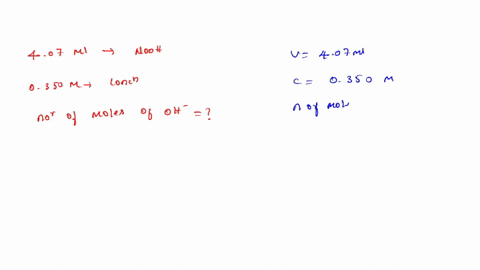 4.07 ml → NaOH
0.350 M → Conc
no^r of moles of OH⁻ = ?
V = 4.07 ml
C = 0.350 M
n of mol